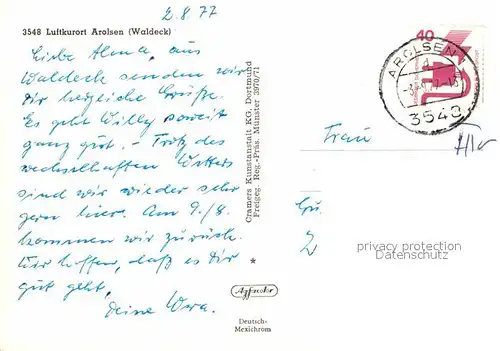 2.8.77
3548 Luftkurort Arolsen (Waldeck)
Liebe Alma, aus
Waldeck senden wir
Dir herzliche Grüße.
Es geht Willy soweit
ganz gut. – Trotz des
wechselhaften Wetters
sind wir wieder sehr
gern hier. Am 9./8.
kommen wir zurück.
Wir hoffen, daß es Dir
gut geht,
Deine
Cramers Kunstanstalt KG, Dortmund
Freigeg. Reg.-Präs. Münster 3970/71
*
Agfacolor
Deutsch-
Mexichrom
40
AROLSEN
3548
Frau
2
privacy protection
Datenschutz